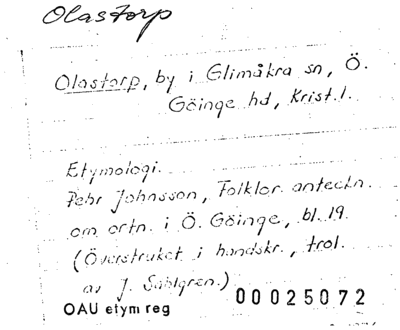 Olastorp
Olastorp, by i Glimåkra sn, Ö.
Göinge hd, Krist. l.
Etymologi.
Pehr Johnsson, Folklor. anteckn.
om ortn. i Ö. Göinge, bl. 19.
(Överstruket i handskr., trol.
av J. Sahlgren.)
OAU etym reg 00025072